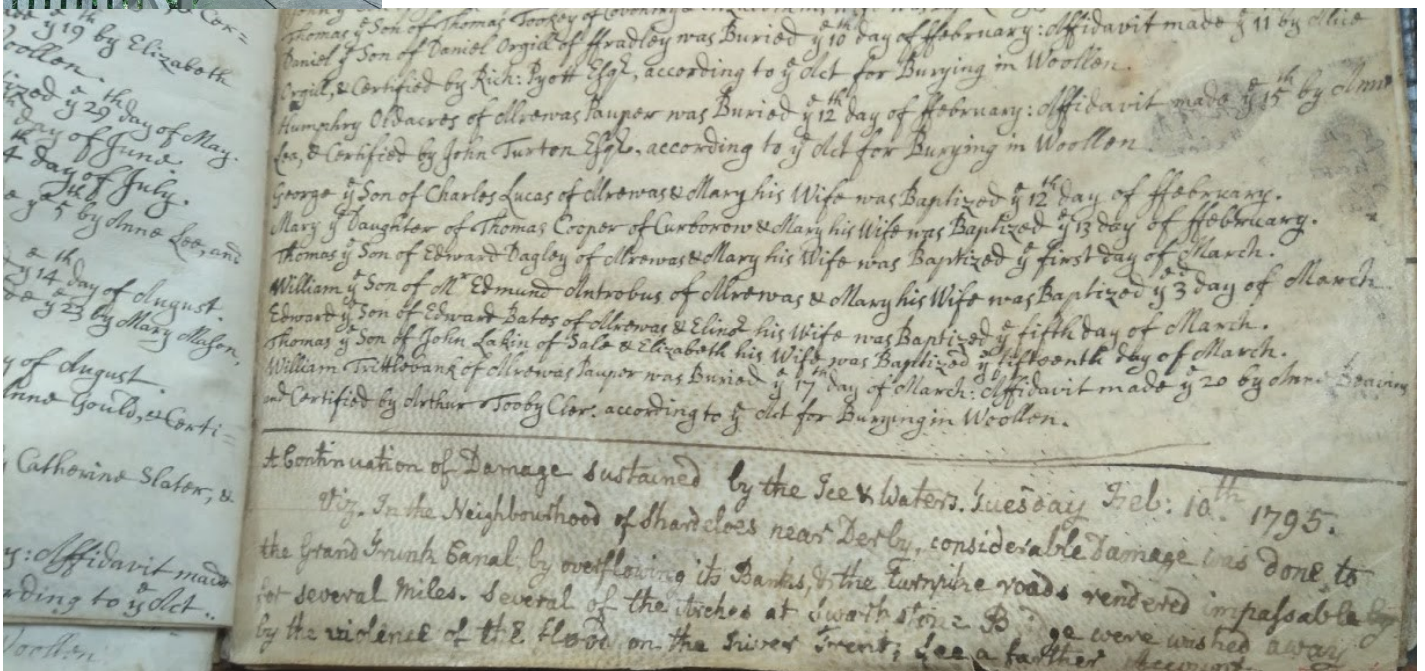 & Cer=
yͤ 19 by Elizabeth
Woollen.
tized yͤ 29th day of May.
th day of June
4th day of July.
e yͤ 5th by Anne Lee, and
yͤ 14th day of August.
de yͤ 23 by Mary Mason,
y of August.
Anne Gould, & Certi=
Catherine Slater, &
y: Affidavit made
rding to yͤ Act.
Woollen
Thomas yͤ Son of Thomas Tookey of
Daniel yͤ Son of Daniel Orgill of ffradley was Buried yͤ 10th day of ffebruary: Affidavit made yͤ 11 by Alice
Orgill, & Certified by Rich: Pyott Esqr, according to yͤ Act for Burying in Woollen.
Humphry Oldacres of Alrewas Pauper was Buried yͤ 12th day of ffebruary: Affidavit made yͤ 15th by Anne
Lea, & Certified by John Turton Esqr, according to yͤ Act for Burying in Woollen.
George yͤ Son of Charles Lucas of Alrewas & Mary his Wife was Baptized yͤ 12th day of ffebruary.
Mary yͤ Daughter of Thomas Cooper of Curborow & Mary his Wife was Baptized yͤ 13 day of ffebruary.
Thomas yͤ Son of Edward Dagley of Alrewas & Mary his Wife was Baptized yͤ first day of March.
William yͤ Son of Mr Edmund Antrobus of Alrewas & Mary his Wife was Baptized yͤ 3d day of March
Edward yͤ Son of Edward Bates of Alrewas & Elinor his Wife was Baptized yͤ fifth day of March.
Thomas yͤ Son of John Lakin of Sale & Elizabeth his Wife was Baptized yͤ fifteenth day of March.
William Trittlebank of Alrewas Pauper was Buried yͤ 17th day of March: Affidavit made yͤ 20 by Anne
and Certified by Arthur Tooby Cler. according to yͤ Act for Burying in Woollen.
A Continuation of Damage sustained by the Ice & Waters. Tuesday Feb: 10th 1795.
Viz. In the Neighbourhood of Shardeloes near Derby, considerable Damage was done to
the Grand Trunk Canal, by overflowing its Banks, & the Turnpike roads rendered impassable
for several Miles. Several of the Arches at Swarkstone B ge were washed away
by the violence of the flood on the River Trent; See a farther